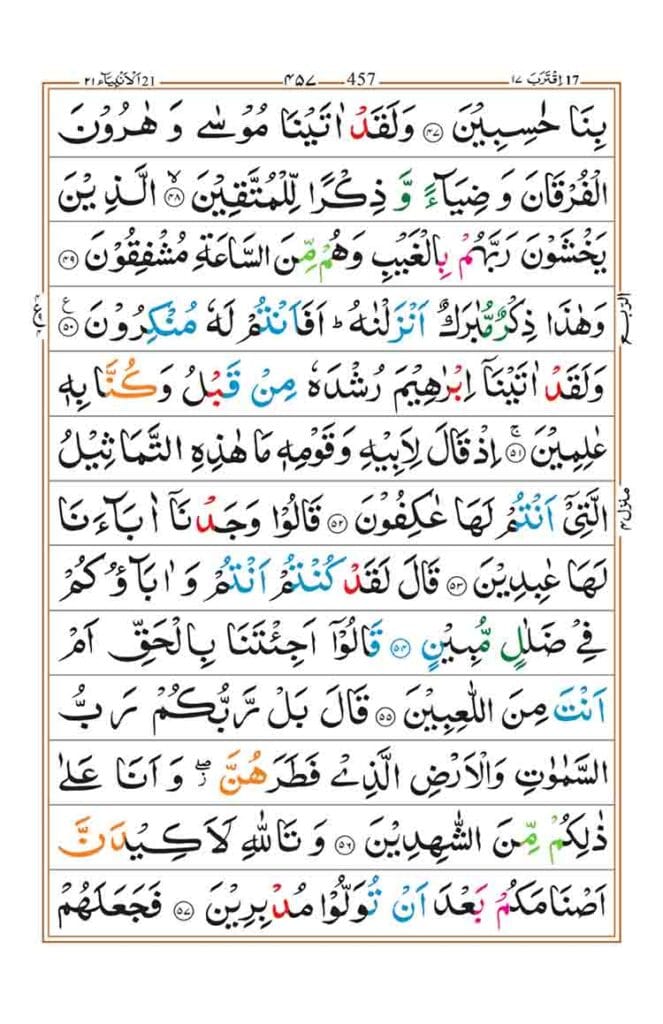 اقترب ١٧ 17 457 ٤٥٧ الانبياء ٢١ 21
بِنَا حٰسِبِيْنَ ﴿۴۷﴾ وَلَقَدْ اٰتَيْنَا مُوْسٰى وَ هٰرُوْنَ
الْفُرْقَانَ وَ ضِيَآءً وَّ ذِكْرًا لِّلْمُتَّقِيْنَ ﴿۴۸﴾ۙ الَّذِيْنَ
يَخْشَوْنَ رَبَّهُمْ بِالْغَيْبِ وَهُمْ مِّنَ السَّاعَةِ مُشْفِقُوْنَ ﴿۴۹﴾
وَهٰذَا ذِكْرٌ مُّبٰرَكٌ اَنْزَلْنٰهُ ؕ اَفَاَنْتُمْ لَهٗ مُنْكِرُوْنَ ﴿۵۰﴾ ع
الربع
وَلَقَدْ اٰتَيْنَاۤ اِبْرٰهِيْمَ رُشْدَهٗ مِنْ قَبْلُ وَكُنَّا بِهٖ
عٰلِمِيْنَ ﴿۵۱﴾ۚ اِذْ قَالَ لِاَبِيْهِ وَقَوْمِهٖ مَا هٰذِهِ التَّمَاثِيْلُ
الَّتِيْۤ اَنْتُمْ لَهَا عٰكِفُوْنَ ﴿۵۲﴾ قَالُوْا وَجَدْنَاۤ اٰبَآءَنَا
منزل ۴
لَهَا عٰبِدِيْنَ ﴿۵۳﴾ قَالَ لَقَدْ كُنْتُمْ اَنْتُمْ وَ اٰبَآؤُكُمْ
فِيْ ضَلٰلٍ مُّبِيْنٍ ﴿۵۴﴾ قَالُوْۤا اَجِئْتَنَا بِالْحَقِّ اَمْ
اَنْتَ مِنَ اللّٰعِبِيْنَ ﴿۵۵﴾ قَالَ بَلْ رَّبُّكُمْ رَبُّ
السَّمٰوٰتِ وَالْاَرْضِ الَّذِيْ فَطَرَهُنَّ ۖ ز وَ اَنَا عَلٰى
ذٰلِكُمْ مِّنَ الشّٰهِدِيْنَ ﴿۵۶﴾ وَ تَاللّٰهِ لَاَكِيْدَنَّ
اَصْنَامَكُمْ بَعْدَ اَنْ تُوَلُّوْا مُدْبِرِيْنَ ﴿۵۷﴾ فَجَعَلَهُمْ